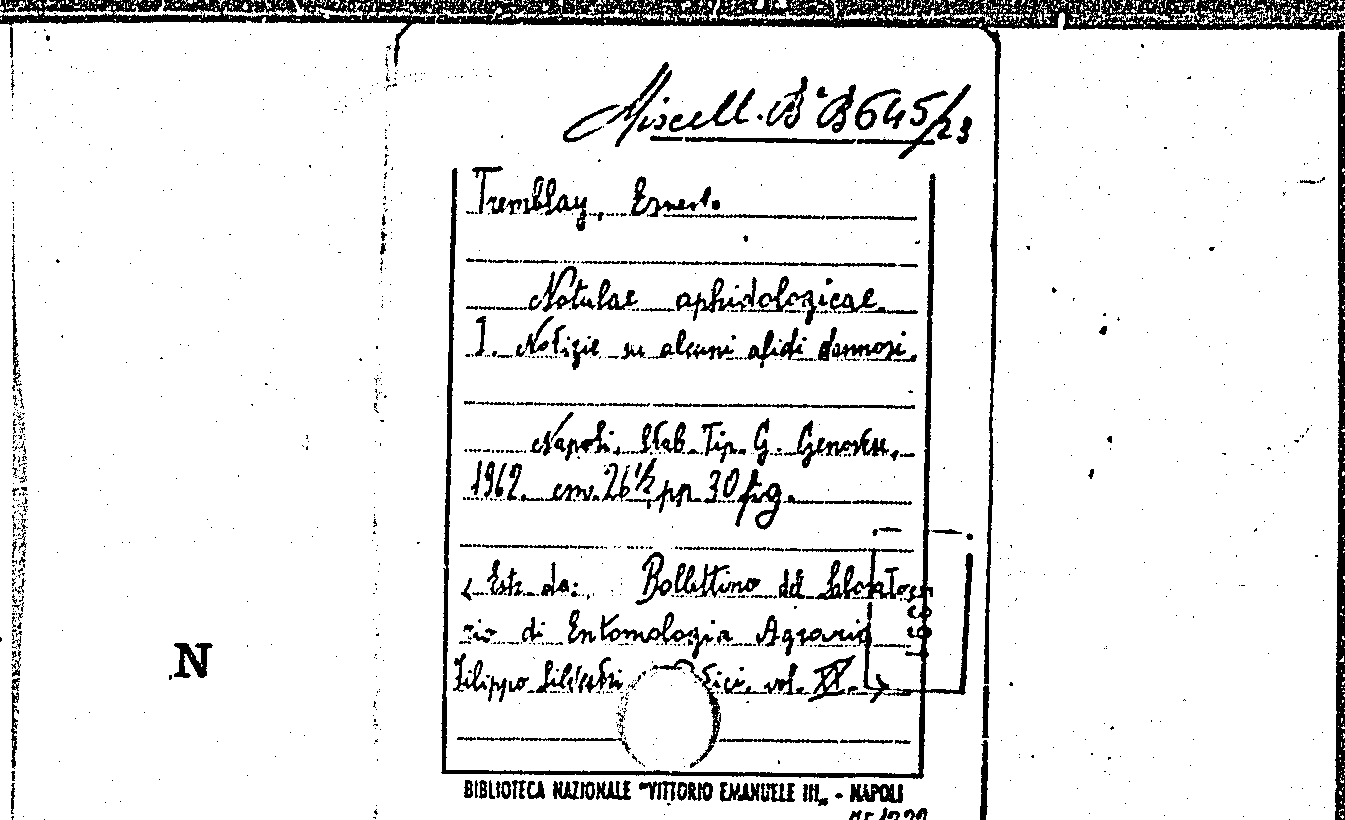 Miscell. B° B645/23
Tremblay, Ernesto
Notulae aphidologicae.
I. Notizie su alcuni afidi dannosi.
Napoli, Stab. Tip. G. Genovese,
1962. cm. 26 1/2, pp. 30 fig.
< Estr. da: Bollettino del Laborato
rio di Entomologia Agraria
Filippo Silvestri tici, vol. XX. >
N
BIBLIOTECA NAZIONALE "VITTORIO EMANUELE III„ - NAPOLI